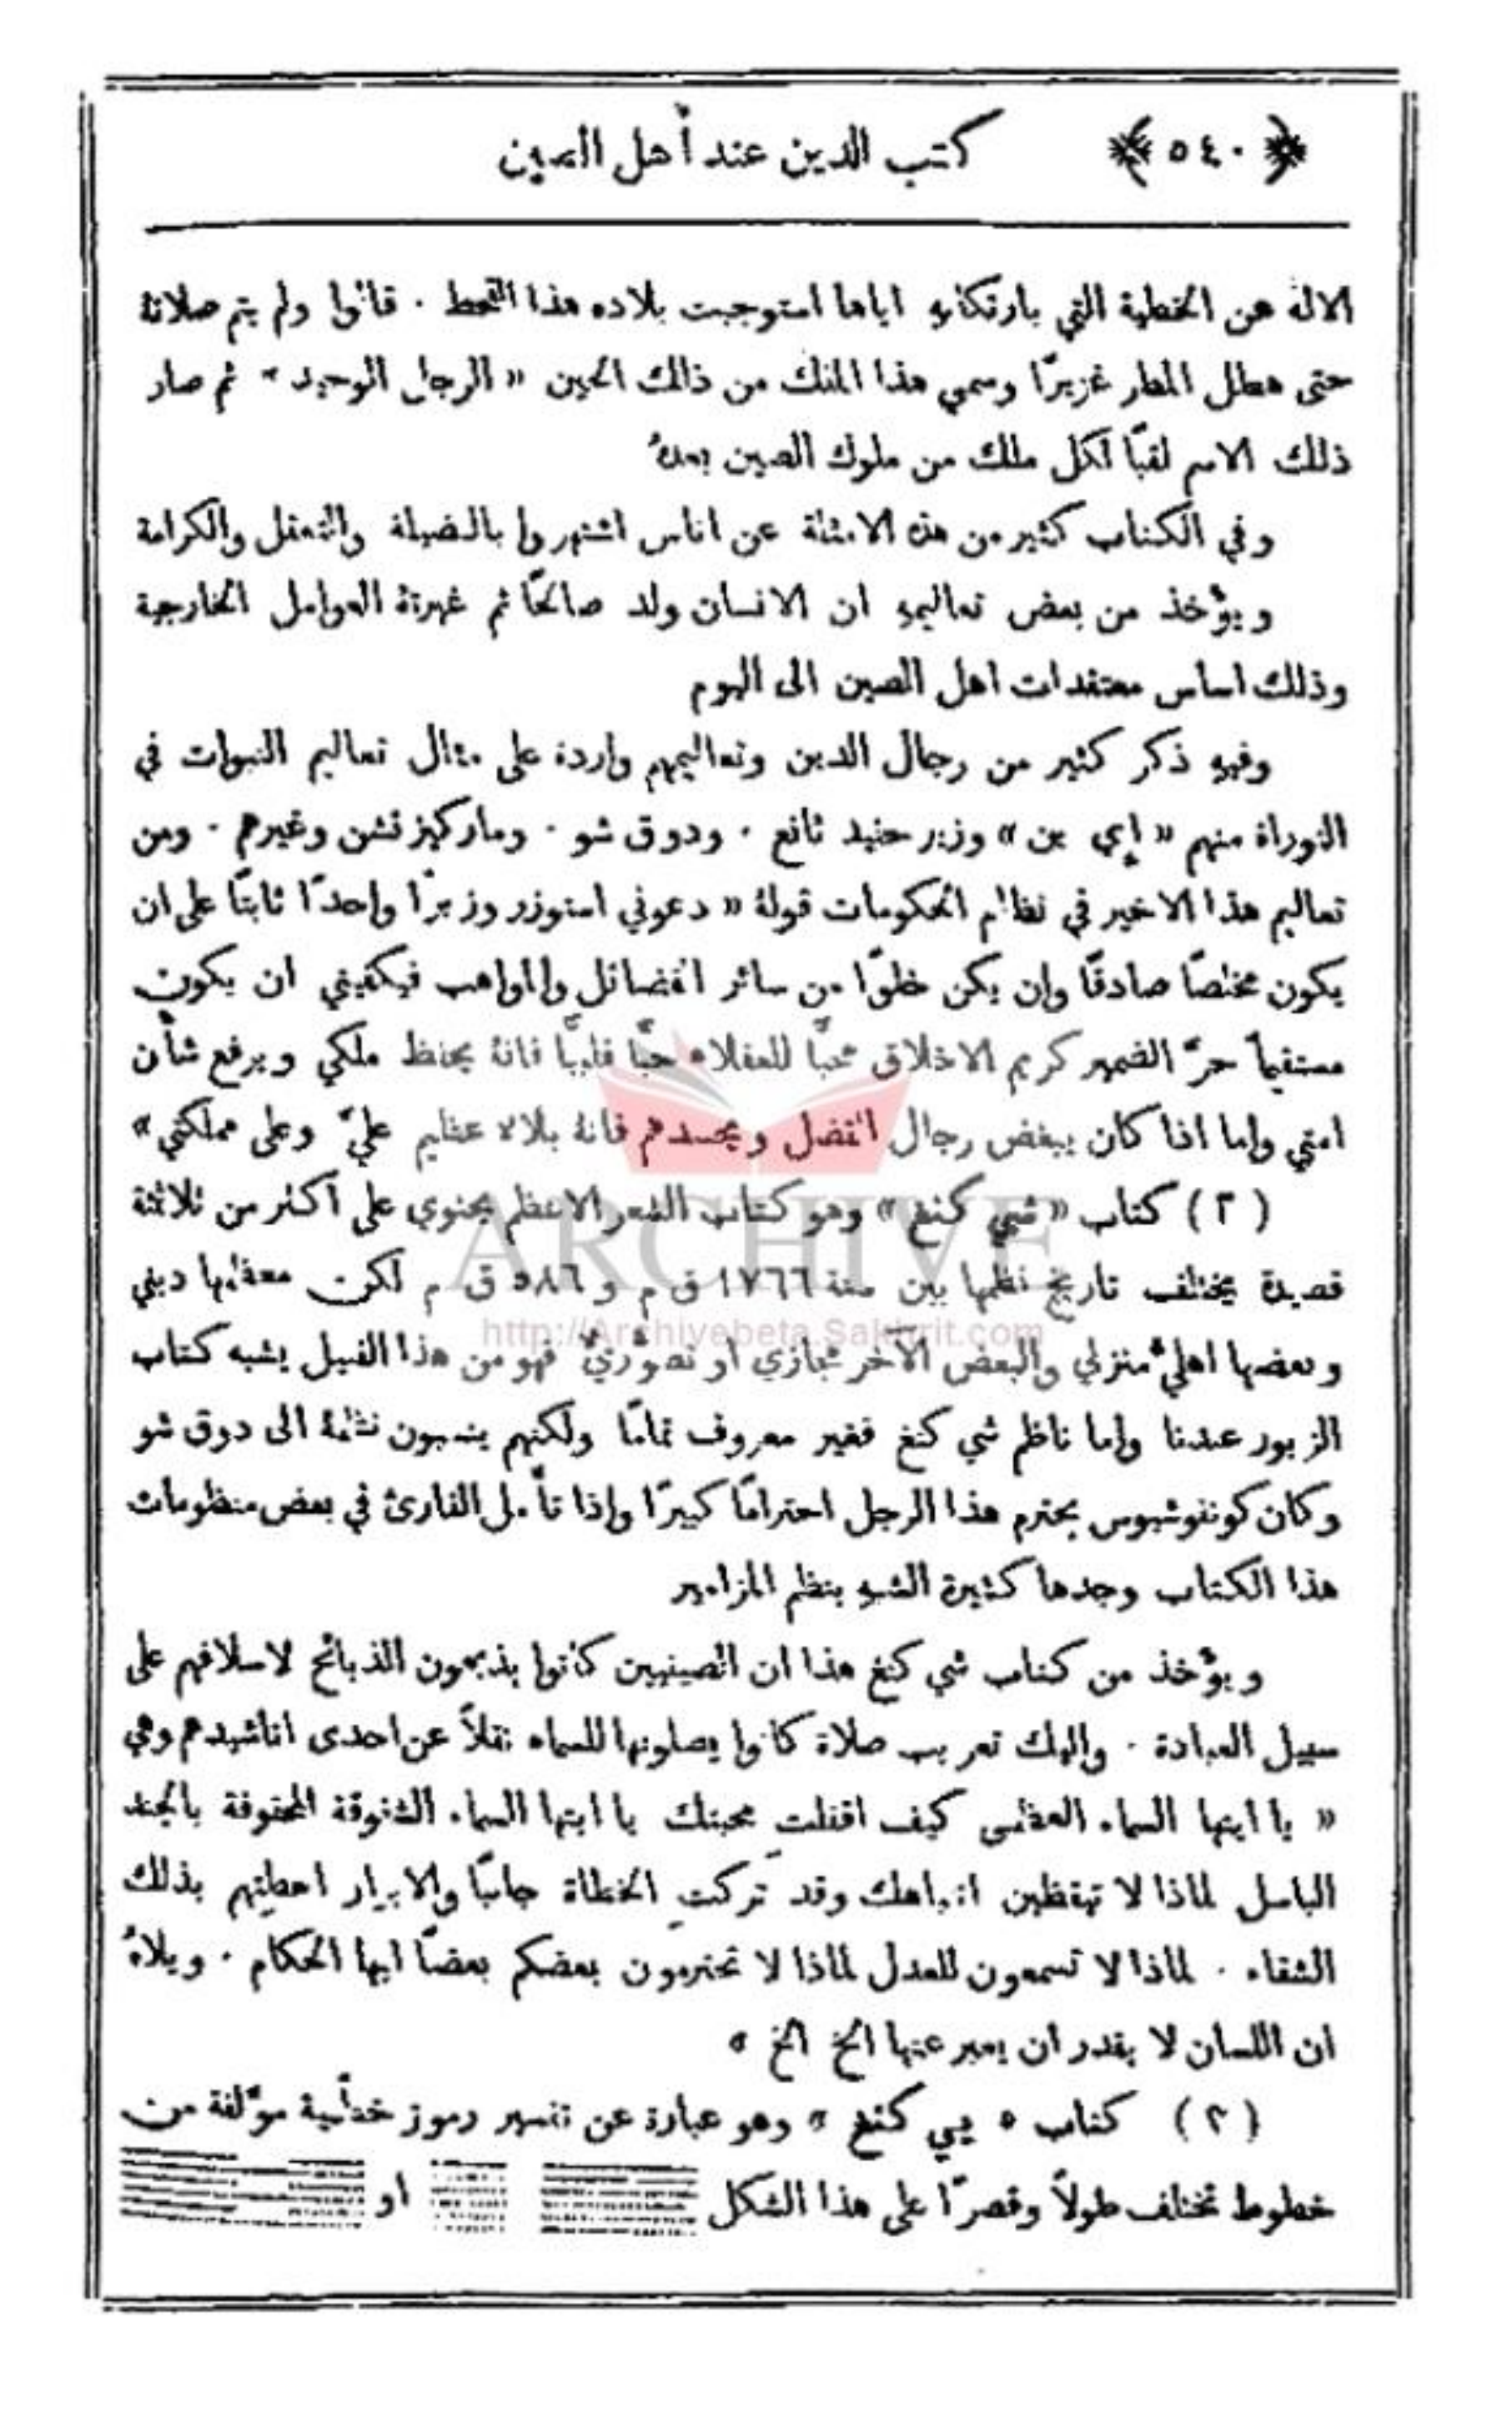 ﴿٥٤٠﴾ كتب الدين عند أهل الصين
الاله عن الخطية التي بارتكابهِ اياها استوجبت بلاده هذا القحط . قالوا ولم يتم صلاتهُ
حتى هطل المطر غزيرًا وسمي هذا الملك من ذلك الحين « الرجل الوحيد » ثم صار
ذلك الاسم لقبًا لكل ملك من ملوك الصين بعدهُ
وفي الكتاب كثير من هذه الامثلة عن اناس اشتهروا بالفضيلة والتعقل والكرامة
ويؤخذ من بعض تعاليمهِ ان الانسان ولد صالحًا ثم غيرتهُ العوامل الخارجية
وذلك اساس معتقدات اهل الصين الى اليوم
وفيهِ ذكر كثير من رجال الدين وتعاليمهم واردة على مثال تعاليم النبوات في
التوراة منهم « إي ين » وزير حفيد تانغ . ودوق شو . وماركيز تشن وغيرهم . ومن
تعاليم هذا الاخير في نظام الحكومات قولهُ « دعوني استوزر وزيرًا واحدًا ثابتًا على ان
يكون مخلصًا صادقًا وان يكن خلوًا من سائر الفضائل والمواهب فيكفيني ان يكون
مستقيماً حرّ الضمير كريم الاخلاق محبًّا للعقلاء حبًّا قلبيًا فانهُ يحفظ ملكي ويرفع شأن
امتي واما اذا كان يبغض رجال الفضل ويحسدهم فانهُ بلاء عظيم عليّ وعلى مملكتي »
(٢) كتاب « شي كنغ » وهو كتاب الشعر الاعظم يحتوي على اكثر من ثلاثمئة
قصيدة يختلف تاريخ نظمها بين سنة ١٧٦٦ ق م و ٥٨٦ ق م لكن معظمها ديني
وبعضها اهليّ منزلي والبعض الآخر مجازي او تصوّريّ فهو من هذا القبيل يشبه كتاب
ARCHIVE
http://Archivebeta.Sakhrit.com
الزبور عندنا واما ناظم شي كنغ فغير معروف تمامًا ولكنهم ينسبون نظمهُ الى دوق شو
وكان كونفوشيوس يحترم هذا الرجل احترامًا كبيرًا واذا تأمل القارئ في بعض منظومات
هذا الكتاب وجدها كثيرة الشبه بنظم المزامير
ويؤخذ من كتاب شي كنغ هذا ان الصينيين كانوا يذبحون الذبائح لاسلافهم على
سبيل العبادة . واليك تعريب صلاة كانوا يصلونها للسماء نقلاً عن احدى اناشيدهم وهي
« يا ايتها السماء العظمى كيف اقفلتِ محبتك يا ايتها السماء الشفوقة المحفوفة بالجند
الباسل لماذا لا تيقظين انتباهك وقد تركتِ الخطاة جانبًا والابرار احطتهم بذلك
الشقاء . لماذا لا تسمعون للعدل لماذا لا تحترمون بعضكم بعضًا ايها الحكام . ويلاهُ
ان اللسان لا يقدر ان يعبر عنها الخ الخ »
(٣) كتاب « يي كنغ » وهو عبارة عن تفسير رموز خطّية مؤلفة من
خطوط تختلف طولاً وقصرًا على هذا الشكل او